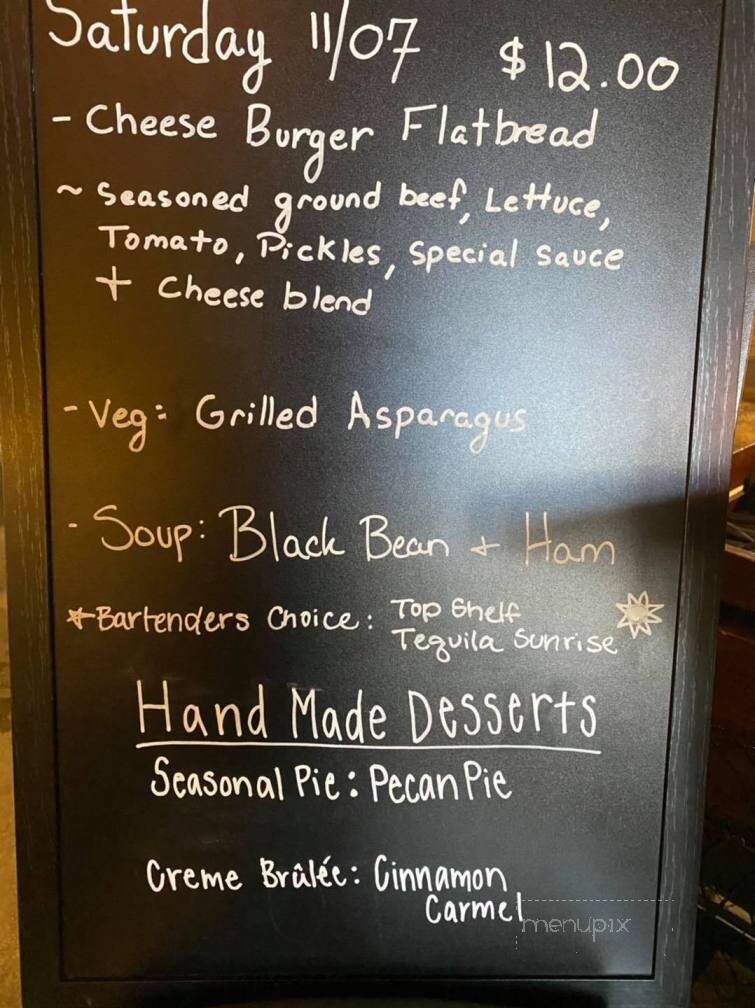 Saturday 11/07 $12.00
- Cheese Burger Flatbread
~ Seasoned ground beef, Lettuce,
Tomato, Pickles, Special Sauce
+ Cheese blend
- Veg: Grilled Asparagus
- Soup: Black Bean + Ham
*Bartenders Choice: Top Shelf
Tequila Sunrise
Hand Made Desserts
Seasonal Pie: Pecan Pie
Creme Brûlée: Cinnamon
Carmel
menupix